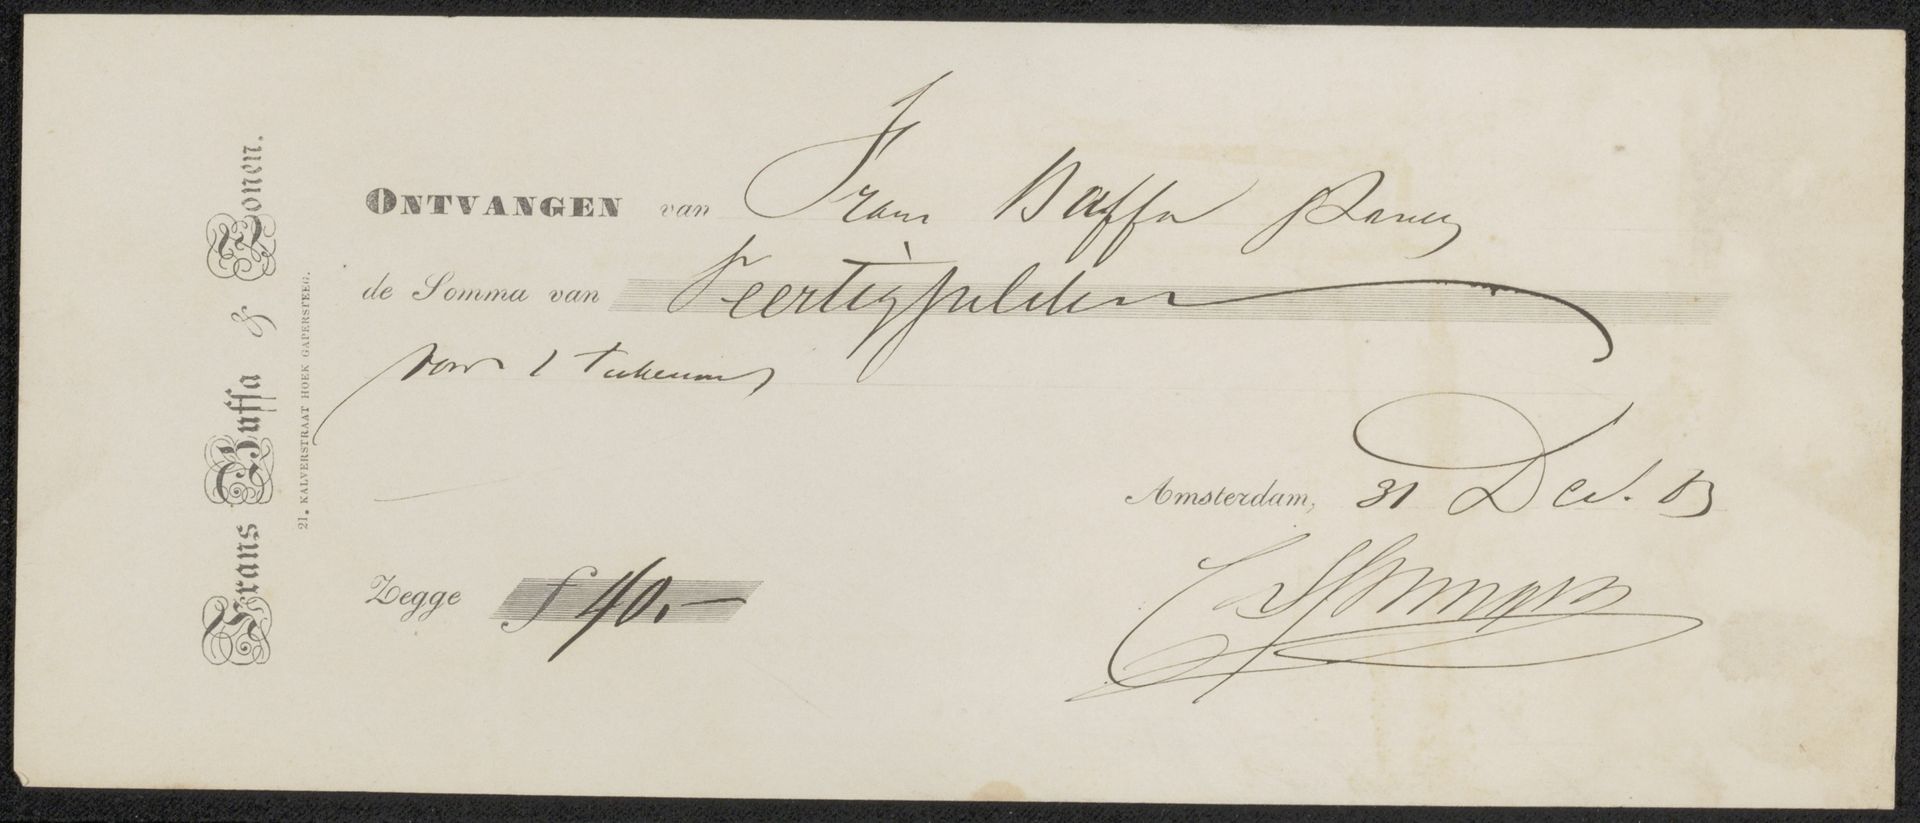 Frans Buffa & Zonen.
21. KALVERSTRAAT HOEK GAPERSTEEG.
ONTVANGEN van Frans Buffa Zonen
de Somma van Veertig gulden
voor 1 teekening
Amsterdam, 31 Dec. 83
Zegge f 40.—